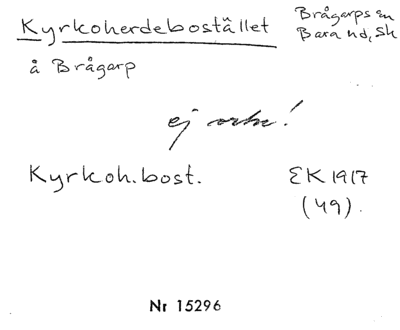 Kyrkoherdebostället
Brågarps sn
Bara hd, Sk
å Brågarp
ej
Kyrkoh.bost.
EK 1917
(49).
Nr 15296